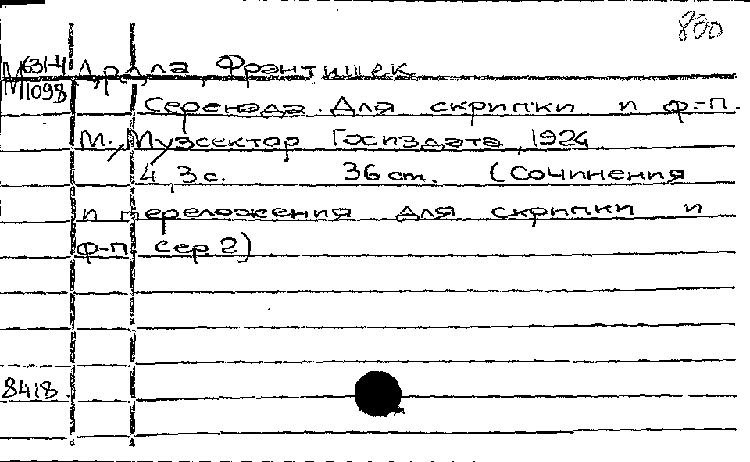 830
М631-4 Дрдла, Франтишек.
М1098
Серенада. Для скрипки и ф-п.
М., Музсектор Госиздата, 1924
4, 3 с. 36 ст. (Сочинения
и переложения для скрипки и
ф-п. сер 2)
8418